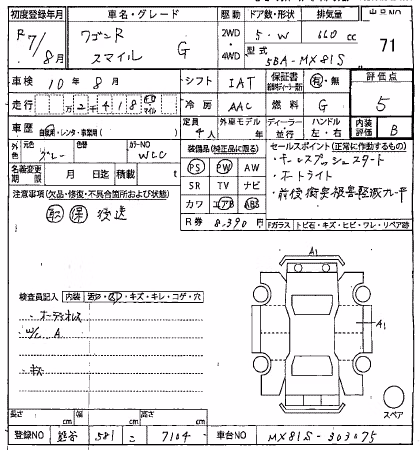 初度登録年月 車名・グレード 駆動 ドア数・形状 排気量
R7/8月 ワゴンR スマイル G 2WD・4WD 5・W 660cc 71
型式 5BA-MX81S
車検 10年8月 シフト IAT 保証書 有・無 評価点
走行 2千418 km マイル 冷房 AAC 燃料 G 5
車歴 自家用・レンタ・事業用( ) 定員 4人 外車モデル 年 ディーラー 並行 ハンドル 左・右 内装評価 B
外色 元色 グレー 色替 カラーNO WLC
名義変更期限 月 日迄 積載 t
装備品(純正品に限る)
PS PW AW
SR TV ナビ
カワ エアB ABS
R券 8,390円
セールスポイント(正常に作動するもの)
・キーレスプッシュスタート
・オートライト
・前後衝突被害軽減ブレーキ
注意事項(欠品・修復・不具合箇所および状態)
取 保 後送
Fガラス トビ石・キズ・ヒビ・ワレ・リペア跡
検査員記入 内装 キズ・キレ・コゲ・穴
・オーディオレス
A
・キズ
A1
A1
A1
スペア
長さ cm 幅 cm 高さ cm
登録NO 熊谷 581 こ 7104 車台NO MX81S-303075